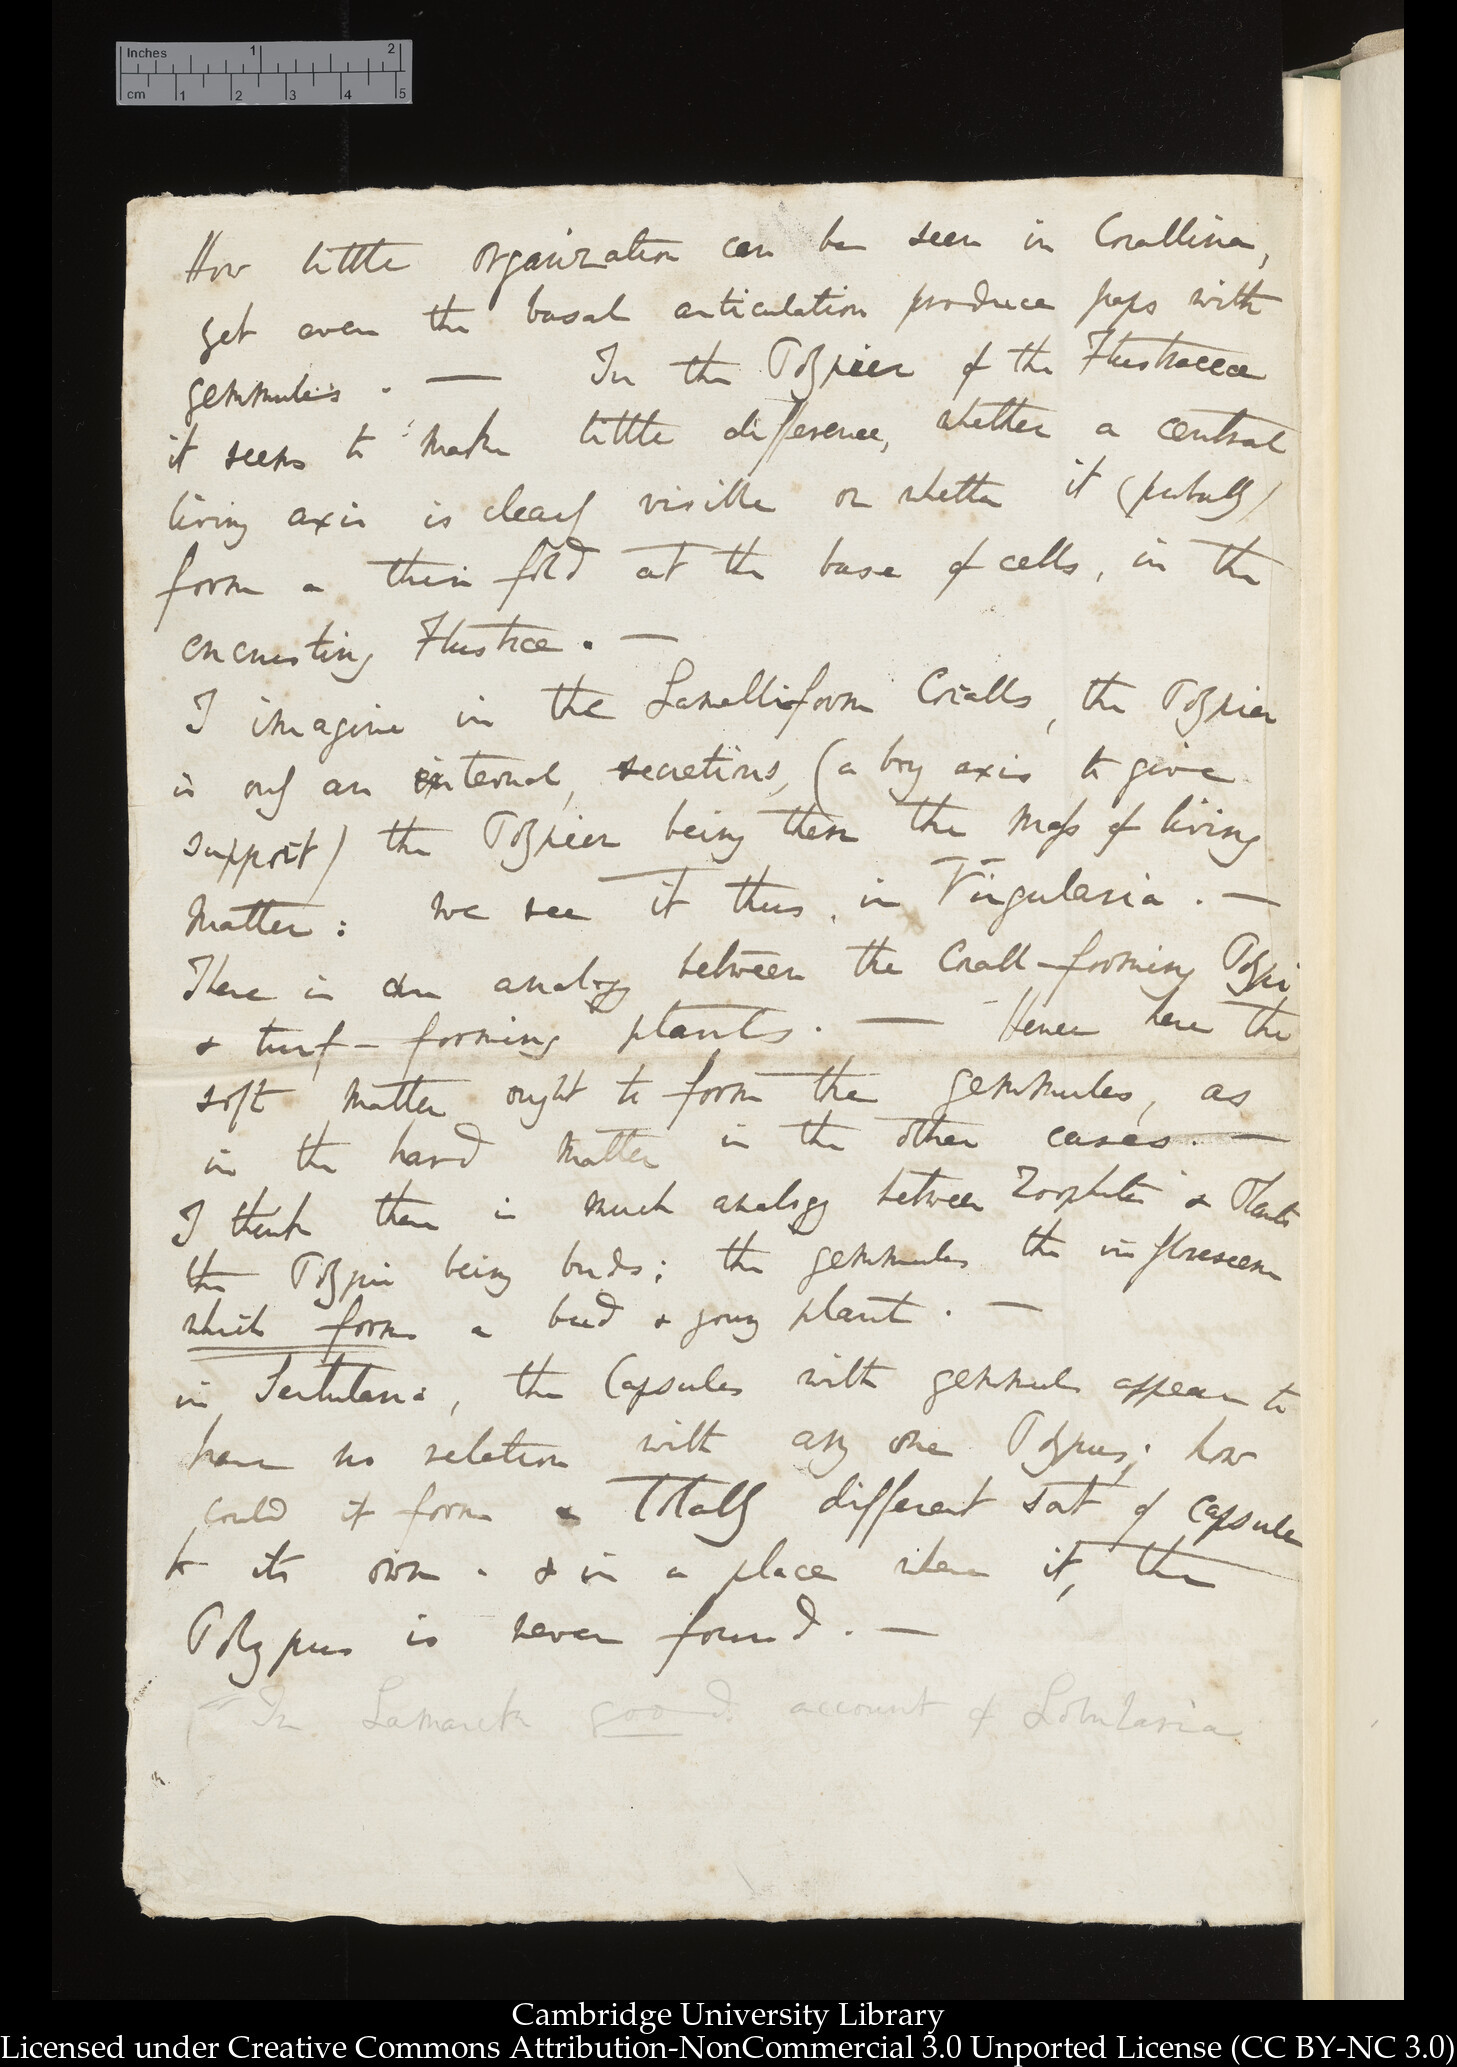 Inches 1 2
cm 1 2 3 4 5
How little organization can be seen in Corallina,
yet even the basal articulation produce paps with
gemmules. — In the Polypier of the Flustraceæ
it seems to make little difference, whether a central
living axis is clearly visible or whether it (probably)
form a thin fold at the base of cells, in the
encrusting Flustræ. —
I imagine in the Lamelliform Coralls, the Polypier
is only an internal, secretions, (a bony axis to give
support) the Polypier being then the mass of living
matter: we see it thus, in Virgularia. —
There is an analogy between the Corall-forming Polypi
& turf-forming plants. — Hence here the
soft matter ought to form the gemmules, as
in the hard matter in the other cases. —
I think there is much analogy between Zoophites & Plants
the Polypi being buds; the gemmules the inflorescence
which forms a bud & young plant. —
in Sertularia, the Capsules with gemmules appear to
have no relation with any one Polypus; how
could it form a totally different sort of capsule
to its own. & in a place where it, the
Polypus is never found. —
In Lamarck good account of Lobularia
Cambridge University Library
Licensed under Creative Commons Attribution-NonCommercial 3.0 Unported License (CC BY-NC 3.0)